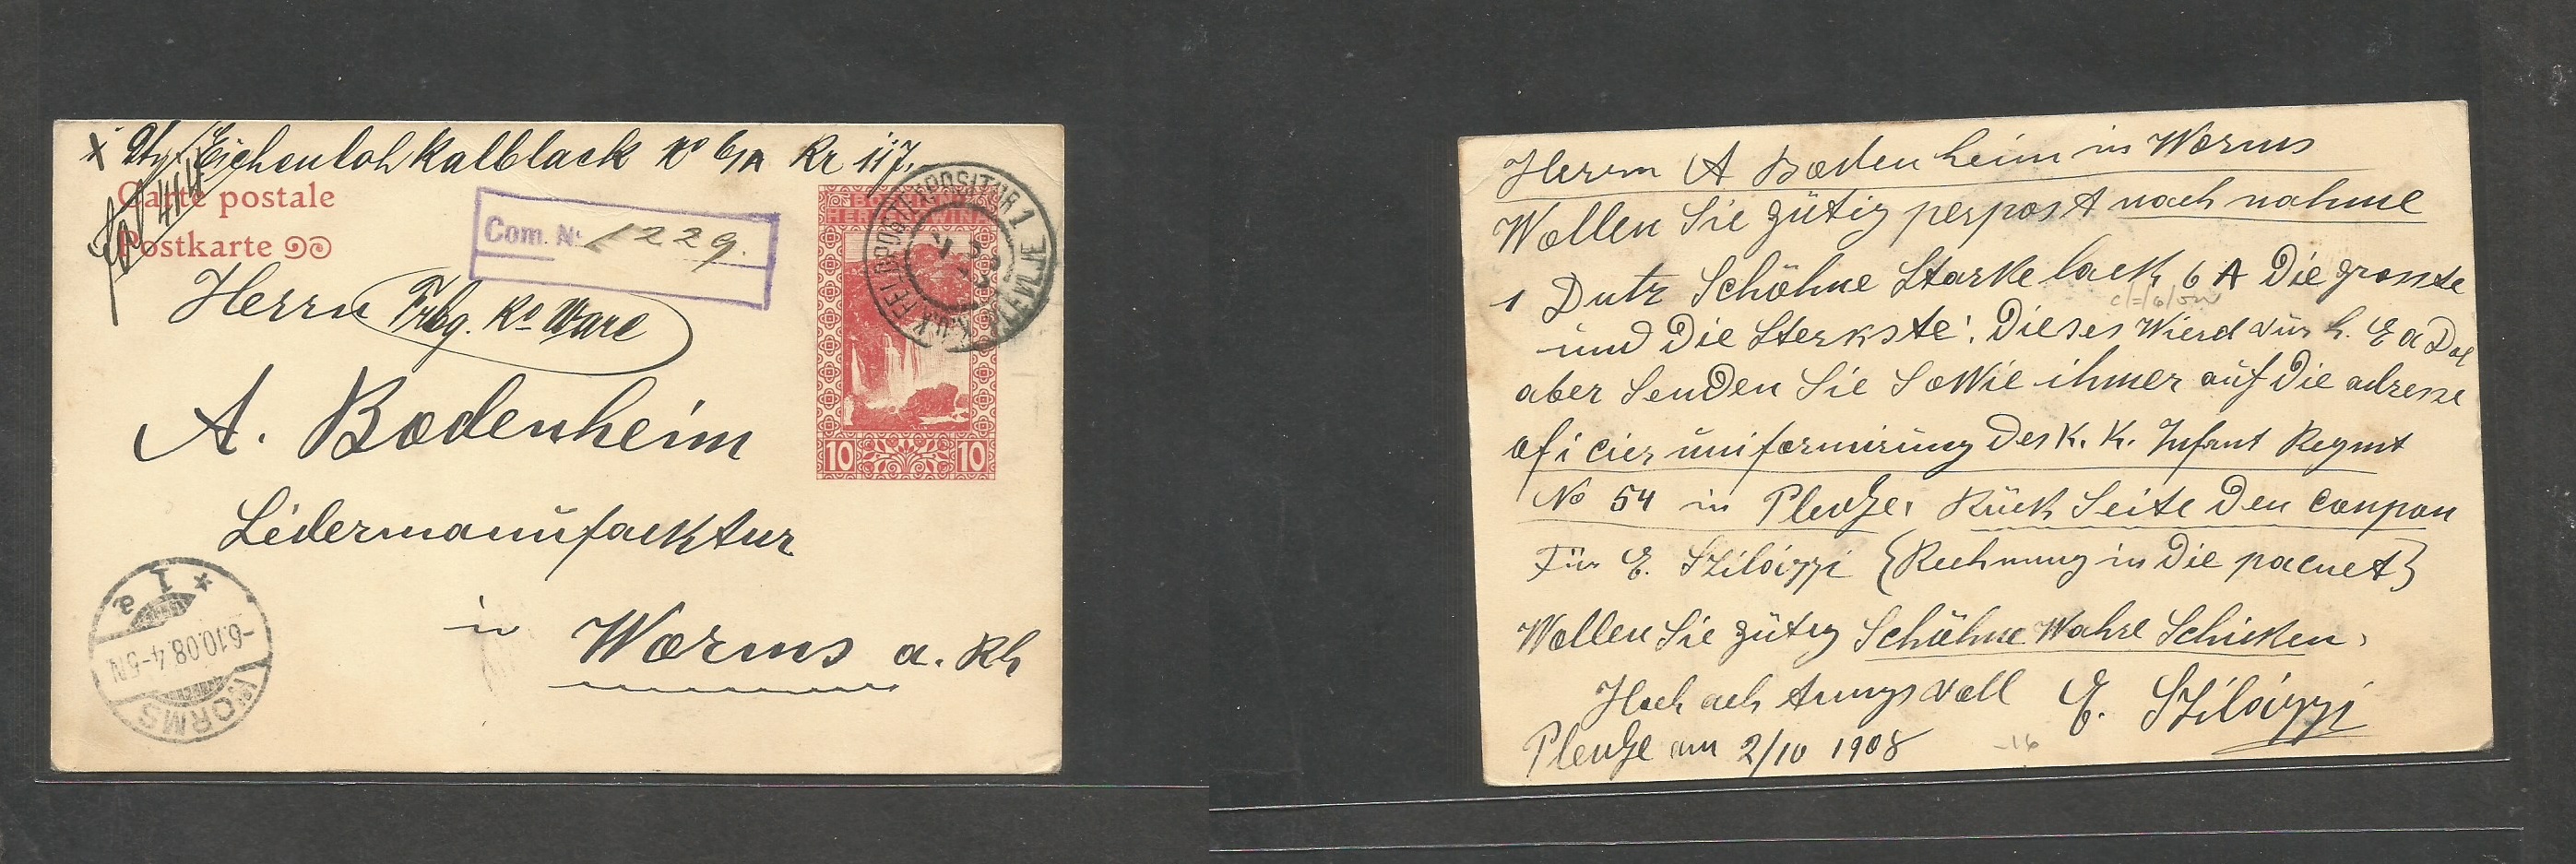 Eichenloh Kalblack No 6/A Kr 117.
Carte postale
Postkarte
Com. No 1229.
Herrn Frbg. Ko Ware
A. Bodenheim
Ledermanufacktur
in Worms a. Rh
10 10
K.u.K. FELDPOSTEXPOSITUR 1 PLEVLJE
WORMS
-6.10.08.4-5N
1 a
Herrn A Bodenheim in Worms
Wollen Sie gütig perpost nach nahme
1 Dutz Schöhne Starke lack, 6 A Die grosste
und Die Sterkste. Dieses Wierd vür h. E a Dol
aber SenDen Sie SoWie ihmer auf Die adresse
oficier uniformirung Des K. K. Infant Regmt
No 54 in Plevlje. Rück Seite Den coupon
Für E. Szilágyi {Rechnung in Die pacuet}
Wollen Sie gütig Schöhne Wahre Schicken.
Hoch ach tungs voll E. Szilágyi
Plevlje am 2/10 1908
-16